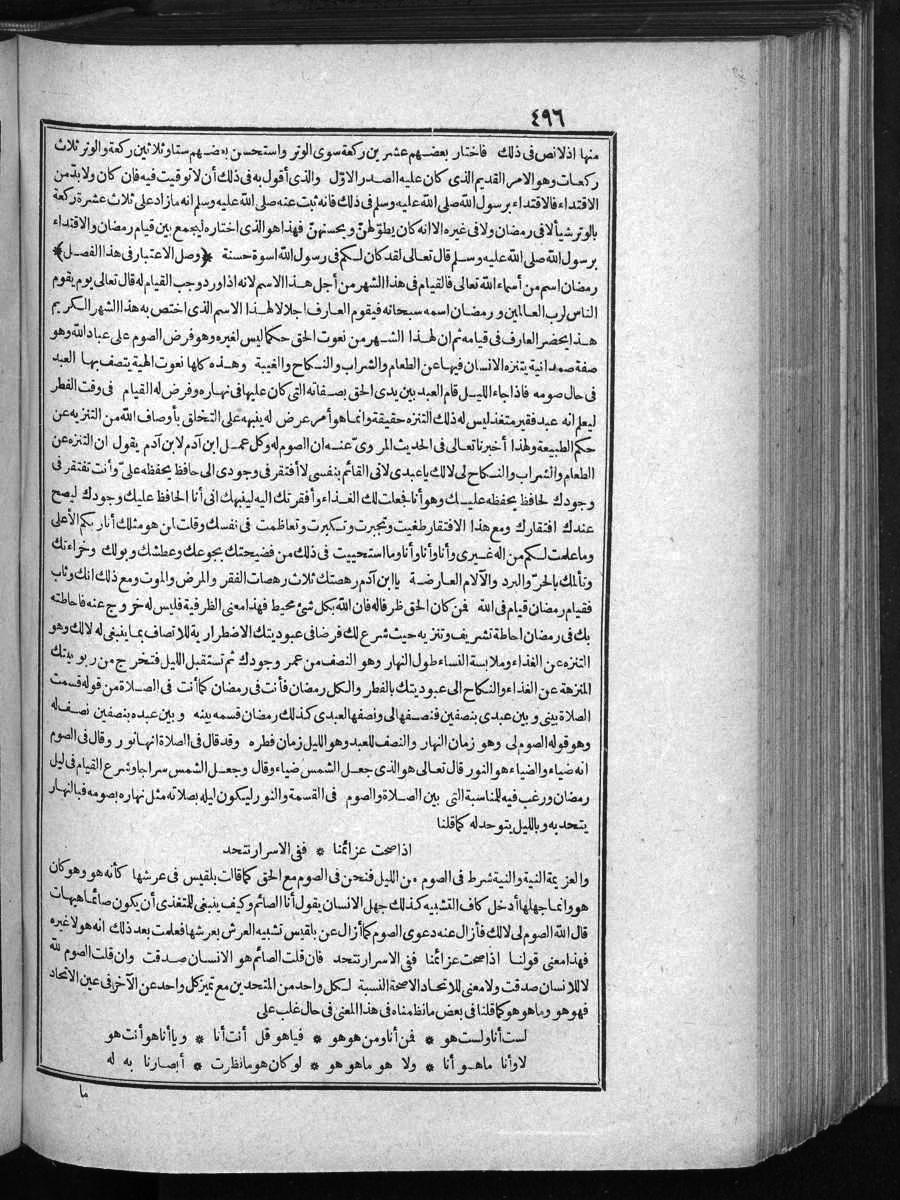 ٤٩٦
منها اذلانص فى ذلك فاختار بعضهم عشرين ركعة سوى الوتر واستحسن بعضهم ستا وثلاثين ركعة والوتر ثلاث
ركعات وهو الامر القديم الذى كان عليه الصدر الاوّل والذى أقول به فى ذلك أن لا توقيت فيه فان كان ولا بدّ من
الاقتداء فالاقتداء برسول الله صلى الله عليه وسلم فى ذلك فانه ثبت عنه صلى الله عليه وسلم انه ما زاد على ثلاث عشرة ركعة
بالوتر شيأ لا فى رمضان ولا فى غيره الا انه كان يطوّلهنّ ويحسنهنّ فهذا هو الذى اختاره ليجمع بين قيام رمضان والاقتداء
برسول الله صلى الله عليه وسلم قال تعالى لقد كان لكم فى رسول الله اسوة حسنة ﴿وصل الاعتبار فى هذا الفصل﴾
رمضان اسم من أسماء الله تعالى فالقيام فى هذا الشهر من أجل هذا الاسم لانه اذا ورد وجب القيام له قال تعالى يوم يقوم
الناس لرب العالمين ورمضان اسمه سبحانه فيقوم العارف اجلالا لهذا الاسم الذى اختص به هذا الشهر الكريم
هذا يحضر العارف فى قيامه ثم ان لهذا الشهر من نعوت الحق حكما ليس لغيره وهو فرض الصوم على عباد الله وهو
صفة صمدانية يتنزه الانسان فيها عن الطعام والشراب والنكاح والغيبة وهذه كلها نعوت الهية يتصف بها العبد
فى حال صومه فاذا جاء الليل قام العبد بين يدى الحق بصفاته التى كان عليها فى نهاره وفرض له القيام فى وقت الفطر
ليعلم انه عبد فقير متغذ ليس له ذلك التنزه حقيقة وانما هو أمر عرض له ينبهه على التخلق بأوصاف الله من التنزيه عن
حكم الطبيعة ولهذا أخبرنا تعالى فى الحديث المروىّ عنه ان الصوم له وكل عمل ابن آدم لابن آدم يقول ان التنزه عن
الطعام والشراب والنكاح لى لا لك يا عبدى لانى القائم بنفسى لا أفتقر فى وجودى الى حافظ يحفظه علىّ وأنت تفتقر فى
وجودك لحافظ يحفظه عليك وهو أنا فجعلت لك الغذاء وأفقرتك اليه لينبهك انى أنا الحافظ عليك وجودك ليصح
عندك افتقارك ومع هذا الافتقار طغيت وتجبرت وتكبرت وتعاظمت فى نفسك وقلت لمن هو مثلك أنا ربكم الأعلى
وما علمت لكم من اله غيرى وأنا وأنا وأنا وما استحييت فى ذلك من فضيحتك بجوعك وعطشك وبولك وخراءتك
وتألمك بالحرّ والبرد والآلام العارضة يا ابن آدم رهصتك ثلاث رهصات الفقر والمرض والموت ومع ذلك انك وثاب
فقيام رمضان قيام فى الله فمن كان الحق ظرفا له فان الله بكل شئ محيط فهذا معنى الظرفية فليس له خروج عنه فاحاطته
بك فى رمضان احاطة تشريف وتنزيه حيث شرع لك فرضا فى عبوديتك الاضطرارية للاتصاف بما ينبغى له لا لك وهو
التنزه عن الغذاء وملابسة النساء طول النهار وهو النصف من عمر وجودك ثم تستقبل الليل فتخرج من ربوبيتك
المنزهة عن الغذاء والنكاح الى عبوديتك بالفطر والكل رمضان فأنت فى رمضان كما أنت فى الصلاة من قوله قسمت
الصلاة بينى وبين عبدى بنصفين فنصفها لى ونصفها لعبدى كذلك رمضان قسمه بينه وبين عبده بنصفين نصف له
وهو قوله الصوم لى وهو زمان النهار والنصف للعبد وهو الليل زمان فطره وقد قال فى الصلاة انها نور وقال فى الصوم
انه ضياء والضياء هو النور قال تعالى هو الذى جعل الشمس ضياء وقال وجعل الشمس سراجا وشرع القيام فى ليل
رمضان ورغب فيه للمناسبة التى بين الصلاة والصوم فى القسمة والنور ليكون ليله بصلاته مثل نهاره بصومه فبالنهار
يتحد به وبالليل يتوحد له كما قلنا
اذا صحت عزائمنا * ففى الاسرار نتحد
والعزيمة النية والنية شرط فى الصوم من الليل فنحن فى الصوم مع الحق كما قالت بلقيس فى عرشها كأنه هو وهو كان
هو وانما جهلها أدخل كاف التشبيه كذلك جهل الانسان يقول أنا الصائم وكيف ينبغى للمتغذى أن يكون صائما هيهات
قال الله الصوم لى لا لك فأزال عنه دعوى الصوم كما أزال عن بلقيس تشبيه العرش بعرشها فعلمت بعد ذلك انه هو لا غيره
فهذا معنى قولنا اذا صحت عزائمنا ففى الاسرار نتحد فان قلت الصائم هو الانسان صدقت وان قلت الصوم لله
لا للانسان صدقت ولا معنى للاتحاد الا صحة النسبة لكل واحد من المتحدين مع تميز كل واحد عن الآخر فى عين الاتحاد
فهو هو وما هو هو كما قلنا فى بعض ما نظمناه فى هذا المعنى فى حال غلب على
لست أنا ولست هو * فمن أنا ومن هو هو * فيا هو قل أنت أنا * ويا أنا هو أنت هو
لا وأنا ما هو أنا * ولا هو ما هو هو * لو كان هو ما نظرت * أبصارنا به له
ما